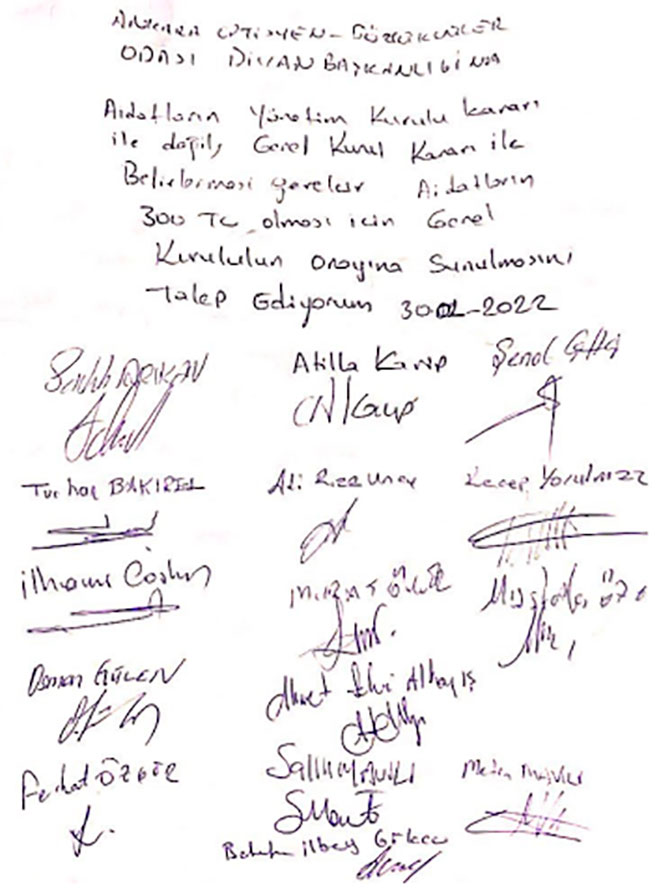 ANKARA OPTİSYEN-GÖZLÜKÇÜLER
ODASI DİVAN BAŞKANLIĞINA
Aidatların Yönetim Kurulu kararı
ile değil, Genel Kurul Kararı ile
Belirlenmesi gerekir Aidatların
300 TL olması için Genel
Kurulun Onayına Sunulmasını
Talep Ediyorum 30 2022
Atilla Karıp Şenol Çiftçi
BAKIREL Ali Rıza Recep Yorulmaz
İlhami Coşkun Mustafa
Osman GÜLEN
Ahmet
Ferhat ÖZGÜR Salih Metin
ilbey Gökçe